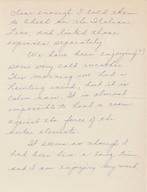 close enough I told them
to check on the Italian
Line and listed those
expenses separately.
We have been enjoying(?)
some very cold weather.
This morning we had a
howling wind, but it is
calm now. It is almost
impossible to heat a room
against the force of the
outer elements.
It seems as though I
had been here a long time
and I am enjoying my work